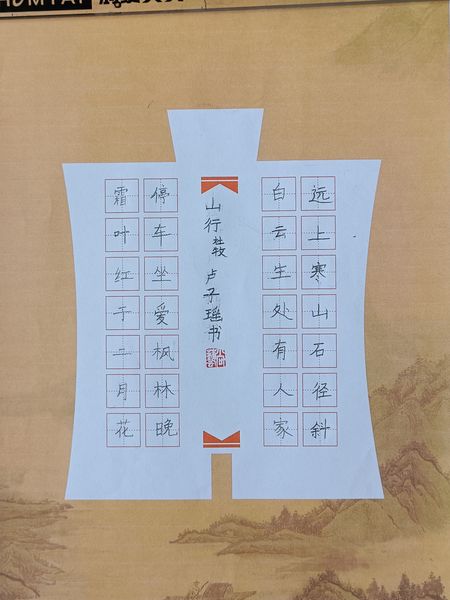 远上寒山石径斜
白云生处有人家
山行 杜牧 卢子瑶书
停车坐爱枫林晚
霜叶红于二月花